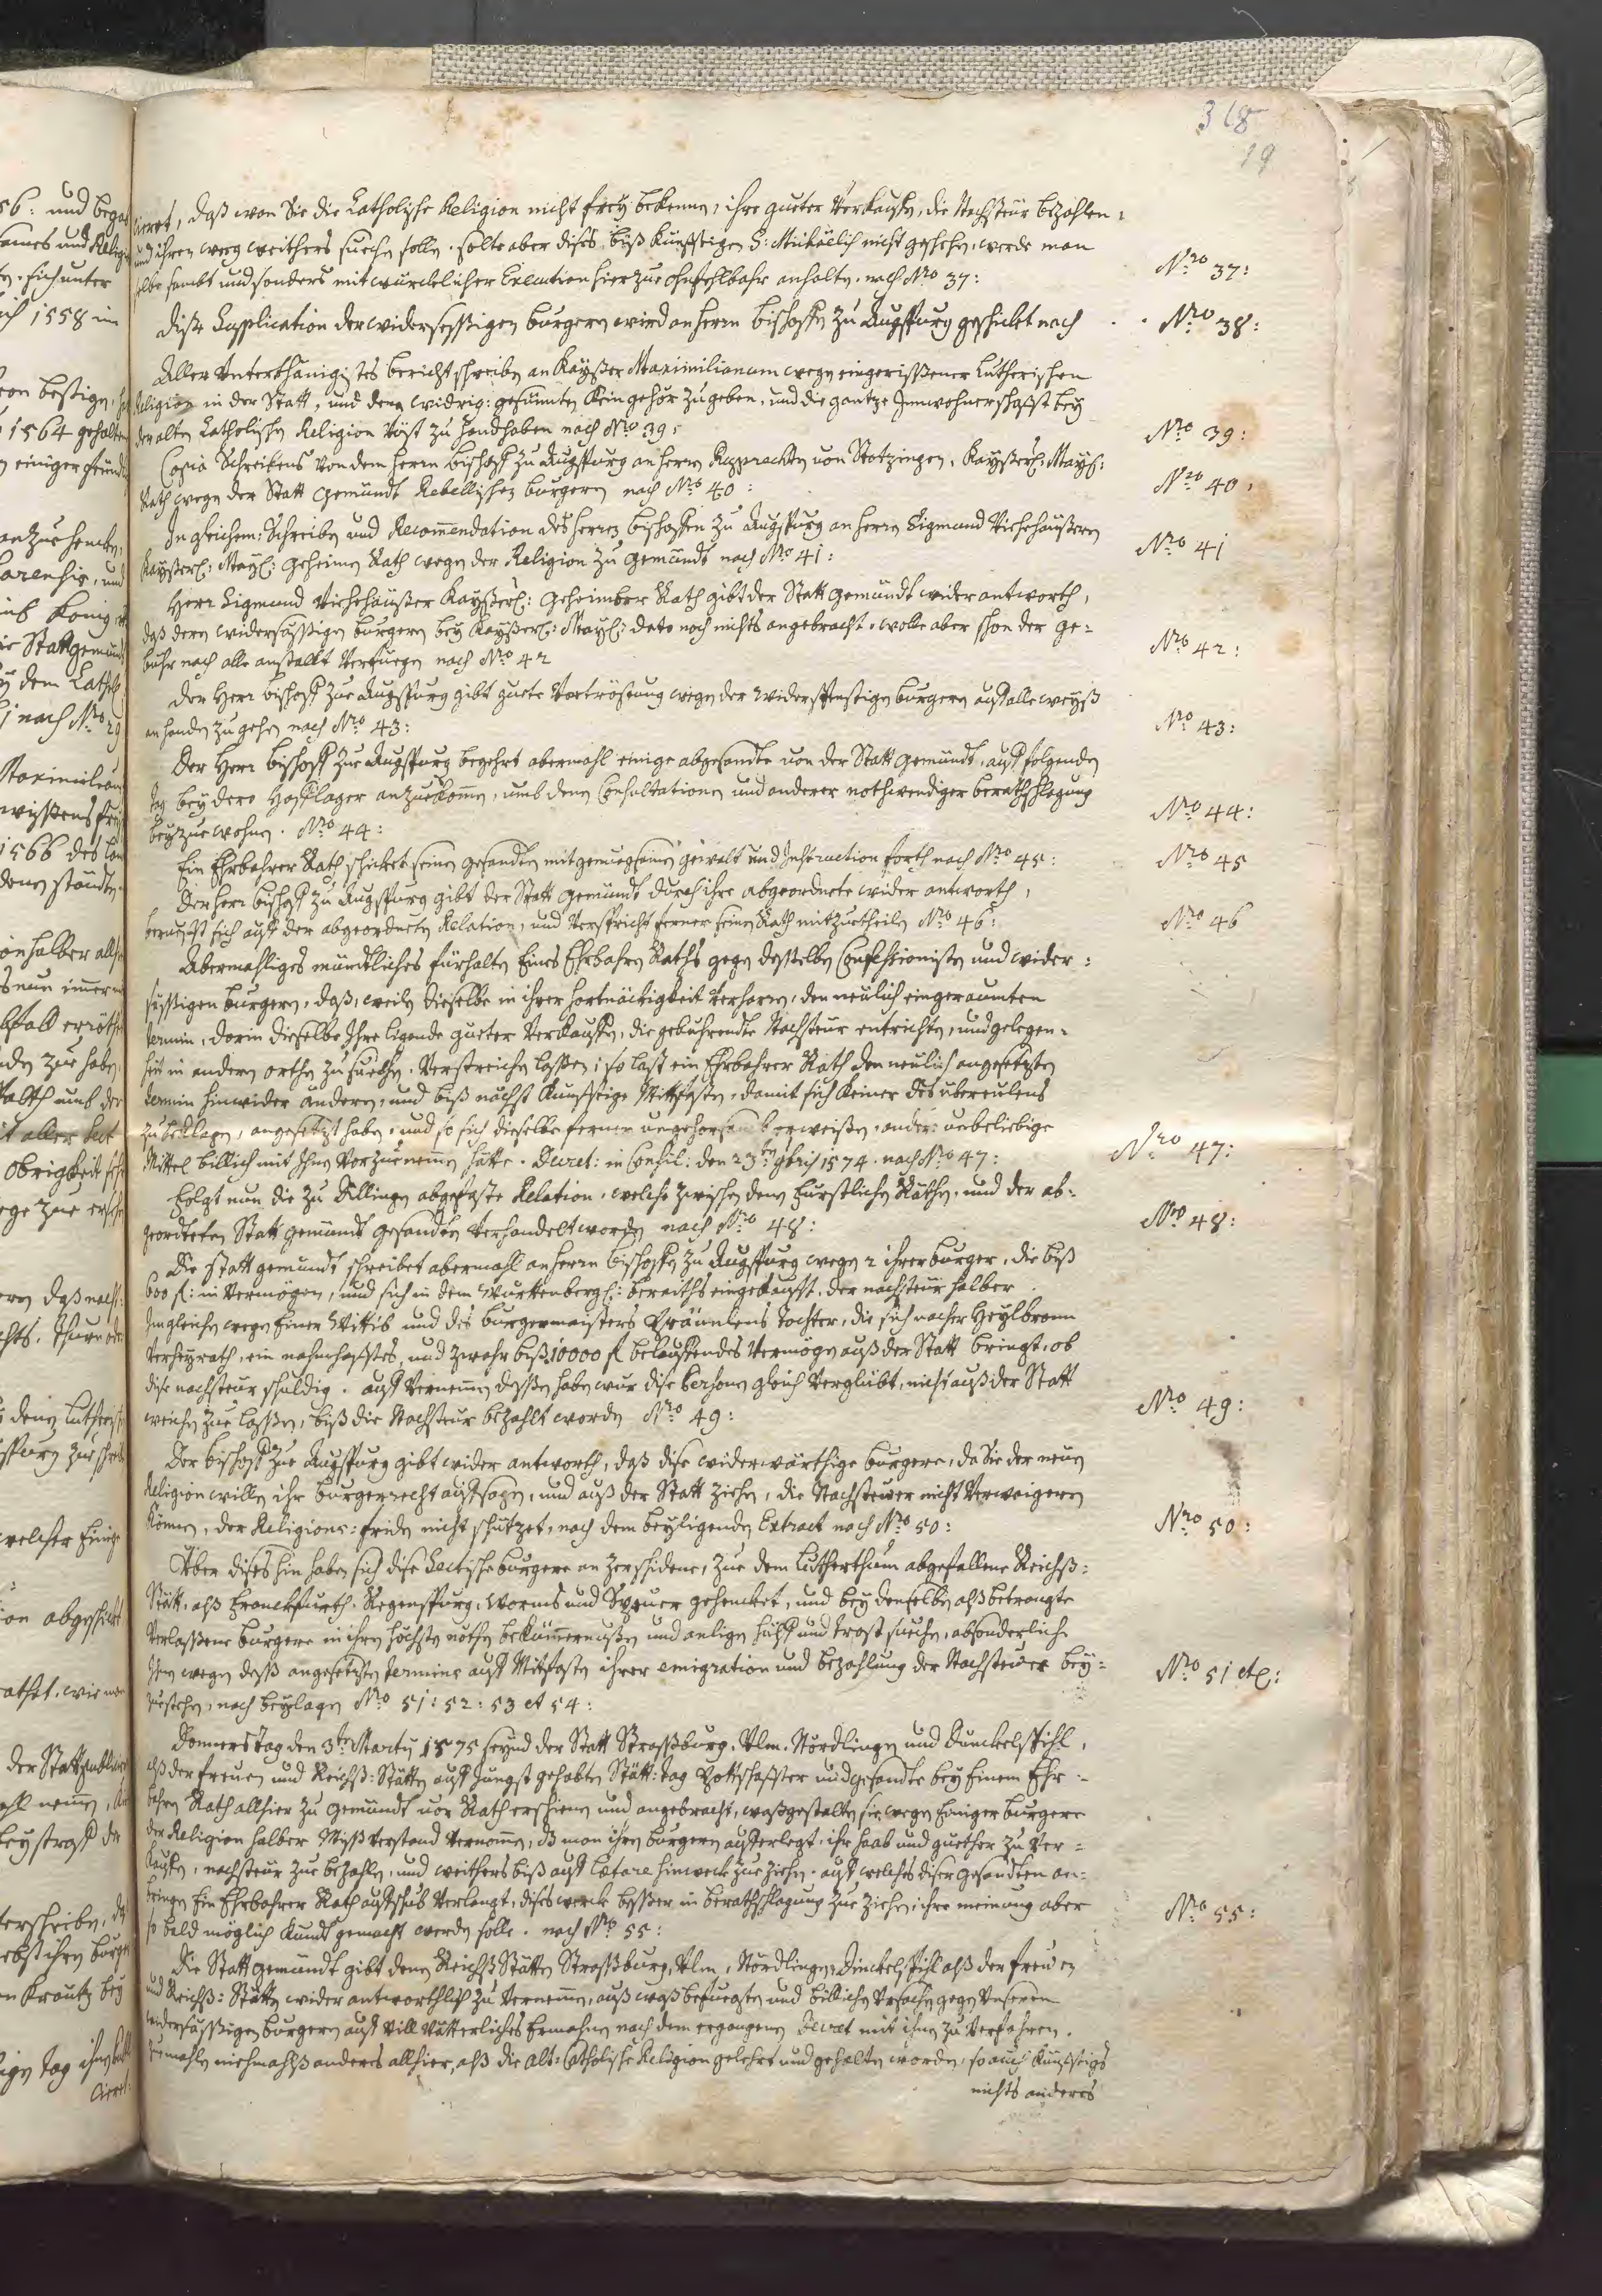 318
19
cieret, daß wan Sie die Catholische Religion nicht frey bekennen, ihre güeter Verkauffen, die Nachsteür bezahlen,
und ihren weeg weithers suechen sollen. solte aber dises biß künfftigen S: Michaëlis nicht geschehen, werde man
selbe sambt und sonders mit würcklicher Execution hierzue ohnfehlbahr anhalten. nach Nro 37:
Nro 37:
Dise Supplication der widersessigen burgern wird an herrn Bischoffen zu Augspurg geschickt nach
Nro 38:
Aller Unterthänigistes bericht schreiben an Kayßer Maximilianum wegen eingerissener Lutherischen
Religion in der Statt, und denen widrig: gesinnten Kein gehör zu geben, und die gantze Innwohnerschafft bey
der alten Catholischen Religion Vöst zu handhaben nach Nro 39:
Nro 39:
Copia Schreibens von dem herrn Bischoff zu Augspurg an herrn Rupprechten von Stotzingen, Kayßerl: Mayst:
Rath wegen der Statt Gemündt Rebellischen burgern nach Nro 40:
Nro 40:
In gleichem: Schreiben und Recommendation des herren Bischoffen zu Augspurg an herrn Sigmund Viehehäußern
Kayßerl: Mayl: geheimen Rath wegen der Religion zu Gemündt nach Nro 41:
Nro 41
Herr Sigmund Viehehäußer Kayßerl: Geheimber Rath gibt der Statt Gemündt wider antworth,
daß denen widersässigen burgern bey Kayßerl: Mayl: dato noch nichts angebracht. wolle aber schon der ge=
bühr nach alle anstallt Verfüegen nach Nro 42
Nro 42:
Der Herr Bischoff zue Augspurg gibt guete Vertröstung wegen der Widerspenstigen burgern auff alle weyß
an handen zu gehen nach Nro 43:
Nro 43:
Der Herr Bischoff zue Augspurg begehrt abermahl einige abgesandte von der Statt Gemündt, auff folgenden
tag bey dero Hofflager anzuekommen, umb denen Consultationen und anderer nothwendiger berathschlagung
beyzuewohnen. Nro 44:
Nro 44:
Ein Ehrbahrer Rath schickt seinen gesandten mit genuegsamen gewalt und Instruction forth nach Nro 45:
Nro 45
Der herr Bischoff zu Augspurg gibt der Statt Gemündt durch ihre abgeordnete wider antworth,
berueffft sich auff der abgeordneten Relation, und Verspricht ferner seinen Rath mitzuetheilen Nro 46:
Nro 46
Abermahliges mündtliches fürhalten Eines Ehrbahren Raths gegen desselben Confessionisten und wider=
sässigen burgern, daß, weilen dieselbe in ihrer hartnäckigkeit Verharren, den neülich eingeraumten
termin, darin dieselbe Ihre ligende güeter Verkauffen, die gebührendte Nachsteür entrichten, und gelegen=
heit in andern orthen zu suechen, Verstreichen lassen; so last ein Ehrbahrer Rath den neülich angesetzten
termin hinwider anderen, und biß nächst künfftige Mittfasten, damit sich keiner des übereylens
zu beklagen, angesetzt haben, und so sich dieselbe ferner ungehorsamb erweißen, ander unbeliebige
Mittel billich mit Ihnen Vorzuenemmen hätte. Decret: in Consil: den 23ten 9bris 1574. nach Nro 47:
Nro 47:
Folgt nun die zu Dillingen abgefaste Relation, welche zwischen denen Fürstlichen Räthen, und der ab=
geordneten Statt Gemündt gesandten Verhandelt worden nach Nro 48:
Nro 48:
Die Statt Gemündt schreibet abermahl an herrn Bischoffen zu Augspurg wegen 2 ihrer burger, die biß
600 fl: in Vermögen, und sich in dem Württenbergl: beraiths eingekaufft, der nachsteür halber
Ingleichen wegen Einer Wittib und des burgermaisters Bräunlens tochter, die sich nacher Heylbronn
Verheyrath, ein nahmhafftes, und zwahr biß 10000 fl belauffendes Vermögen auß der Statt bringt, ob
dise nachsteur schuldig. auff Vernemmen dessen haben wür dise Persohnen gleich Verglübt, nicht auß der Statt
weichen zue lassen, biß die Nachsteur bezahlt worden Nro 49:
Nro 49:
Der Bischoff zue Augspurg gibt wider antworth, daß dise widerwärthige burgere, da Sie der neüen
Religion willen ihr burgerrecht auffsagen, und auß der Statt ziehen, die Nachsteüer nicht Verwaigeren
können, der Religions: friden nicht schützet, nach dem beyligenden Extract nach Nro 50:
Nro 50:
Über dises hin haben sich dise Sectische burgere an zerschidene, zue dem Lutherthum abgefallene Reichß:
Stätt, alß Franckfurth, Regenspurg, Worms und Speyer gehencket, und bey denselben alß betrangte
Verlassene burgere in ihren höchsten nöthen bekümmernußen und anligen hülff und trost suechen, absonderlich
Ihnen wegen deß angesetzten termins auff Mittfasten ihrer emigration und bezahlung der Nachsteüer bey=
zuestehen, nach beylagen Nro 51: 52: 53 et 54:
Nro 51 etc:
Donnerstag den 3ten Martij 1575 seynd der Statt Straßburg, Ulm, Nördlingen und Dunckelspihl,
alß der freyen und Reichß: Stätten auff jüngst gehabten Stätt: tag Bottschaffter und gesandte bey Einem Ehr=
bahren Rath allhier zu Gemündt vor Rath erschienen und angebracht, waßgestalten sie wegen Einiger burgere
der Religion halber Mißverstand Vernommen, daß man ihren burgern aufferlegt, ihr haab und güether zu Ver=
kauffen, nachsteür zue bezahlen, und weithers biß auff Lætare hinweck zue ziehen. auff welches diser gesandten an=
bringen Ein Ehrbahrer Rath auffschub Verlangt, dises werck besser in berathschlagung zue ziehen, ihre meinung aber
so bald möglich kundt gemacht werden solle. nach Nro 55:
Nro 55:
Die Statt Gemündt gibt denen Reichß Stätten Straßburg, Ulm, Nördlingen, Dinckelspihl alß der freyen
und Reichß: Stätten wider antworthlich zu Vernemmen, auß waß befuegten und billichen Ursachen gegen Unseren
widersässigen burgern auff Vill Vätterliches Ermahnen nach dem ergangenen Decret mit ihnen zu Verfahren.
Zumahlen niehmahlß anderes allhier, alß die Alt: Catholische Religion gelehrt und gehalten worden, so auch künfftigs
nichts anderes